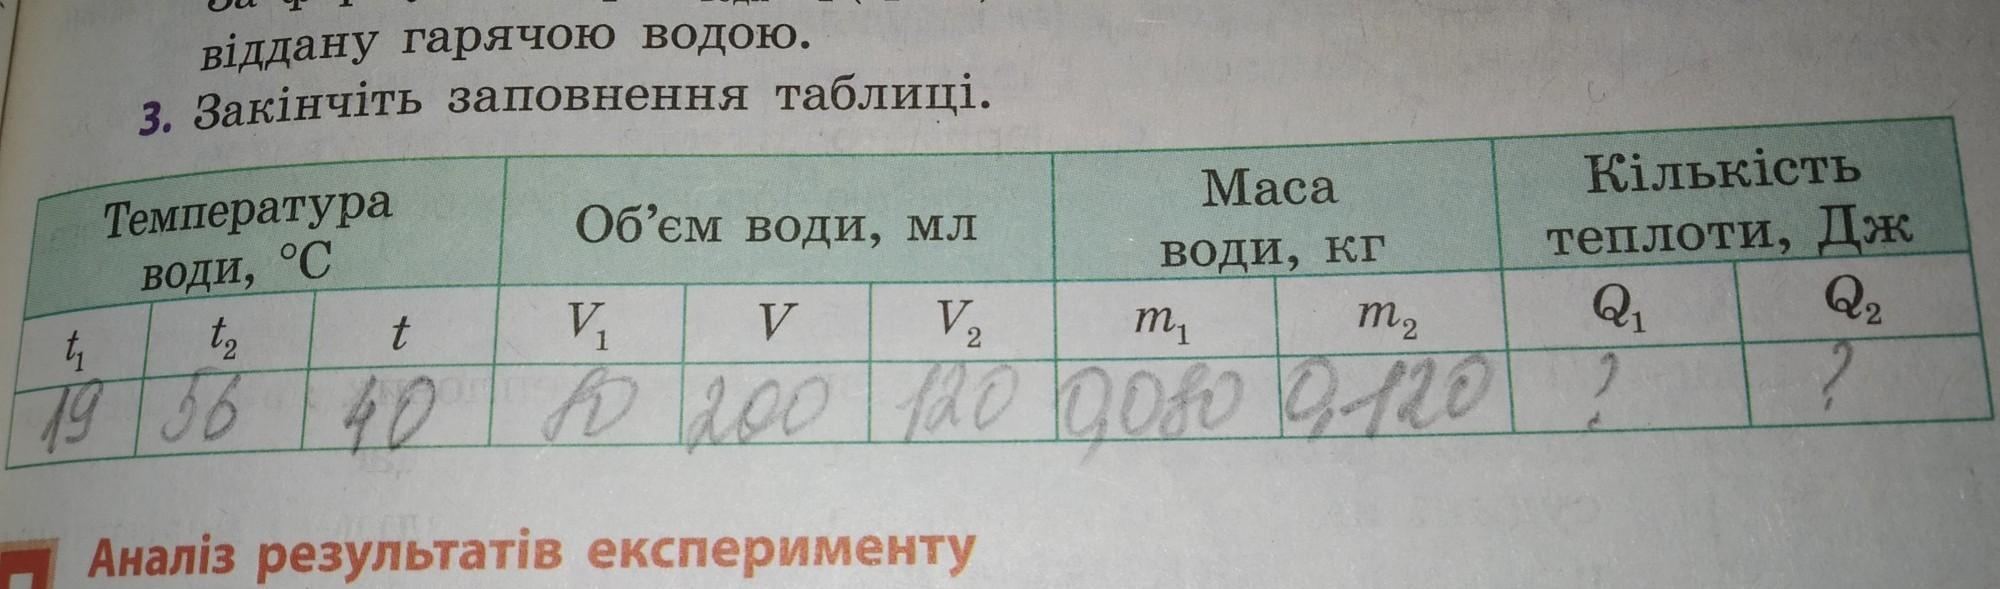 віддану гарячою водою.
3. Закінчіть заповнення таблиці.
Температура води, °С Об'єм води, мл Маса води, кг Кількість теплоти, Дж
t₁ t₂ t V₁ V V₂ m₁ m₂ Q₁ Q₂
19 56 40 80 200 120 0,080 0,120 ? ?
Аналіз результатів експерименту